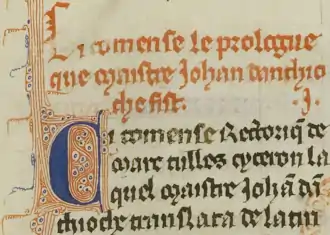 Ci comense le prologue
que maistre Johan danthio
che fist. .j.
Ci comense Rectoriq de
marc tulles cyceron la
quel maistre Johā dā
thioche translata de latin